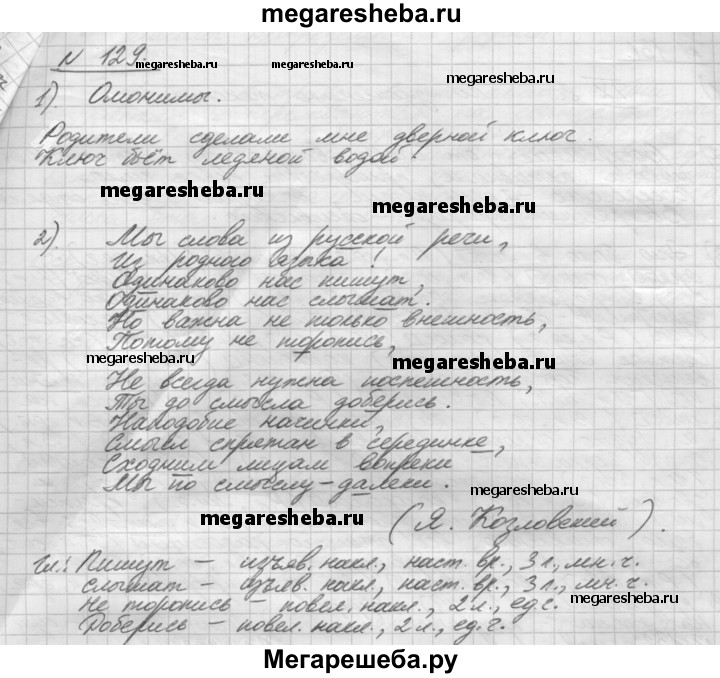 megaresheba.ru
№ 129.
megaresheba.ru
megaresheba.ru
megaresheba.ru
1). Омонимы.
Родители сделали мне дверной ключ.
Ключ бьёт ледяной водой.
megaresheba.ru
megaresheba.ru
2). Мы слова из русской речи,
Из родного языка!
Одинаково нас пишут,
Одинаково нас слышат.
Но важна не только внешность,
Потому не торопись,
megaresheba.ru
megaresheba.ru
Не всегда нужна поспешность,
Ты до смысла доберись.
Наподобие начинки,
Смысл спрятан в серединке,
Сходним лицам вопреки
Мы по смыслу - далеки.
megaresheba.ru
megaresheba.ru
(Я. Козловский).
Гл.: Пишут – изъяв. накл., наст. вр., 3 л., мн. ч.
слышат – изъяв. накл., наст. вр., 3 л., мн. ч.
Не торопись – повел. накл., 2 л., ед. ч.
megaresheba.ru
Доберись – повел. накл., 2 л., ед. ч.
Мегарешеба.ру